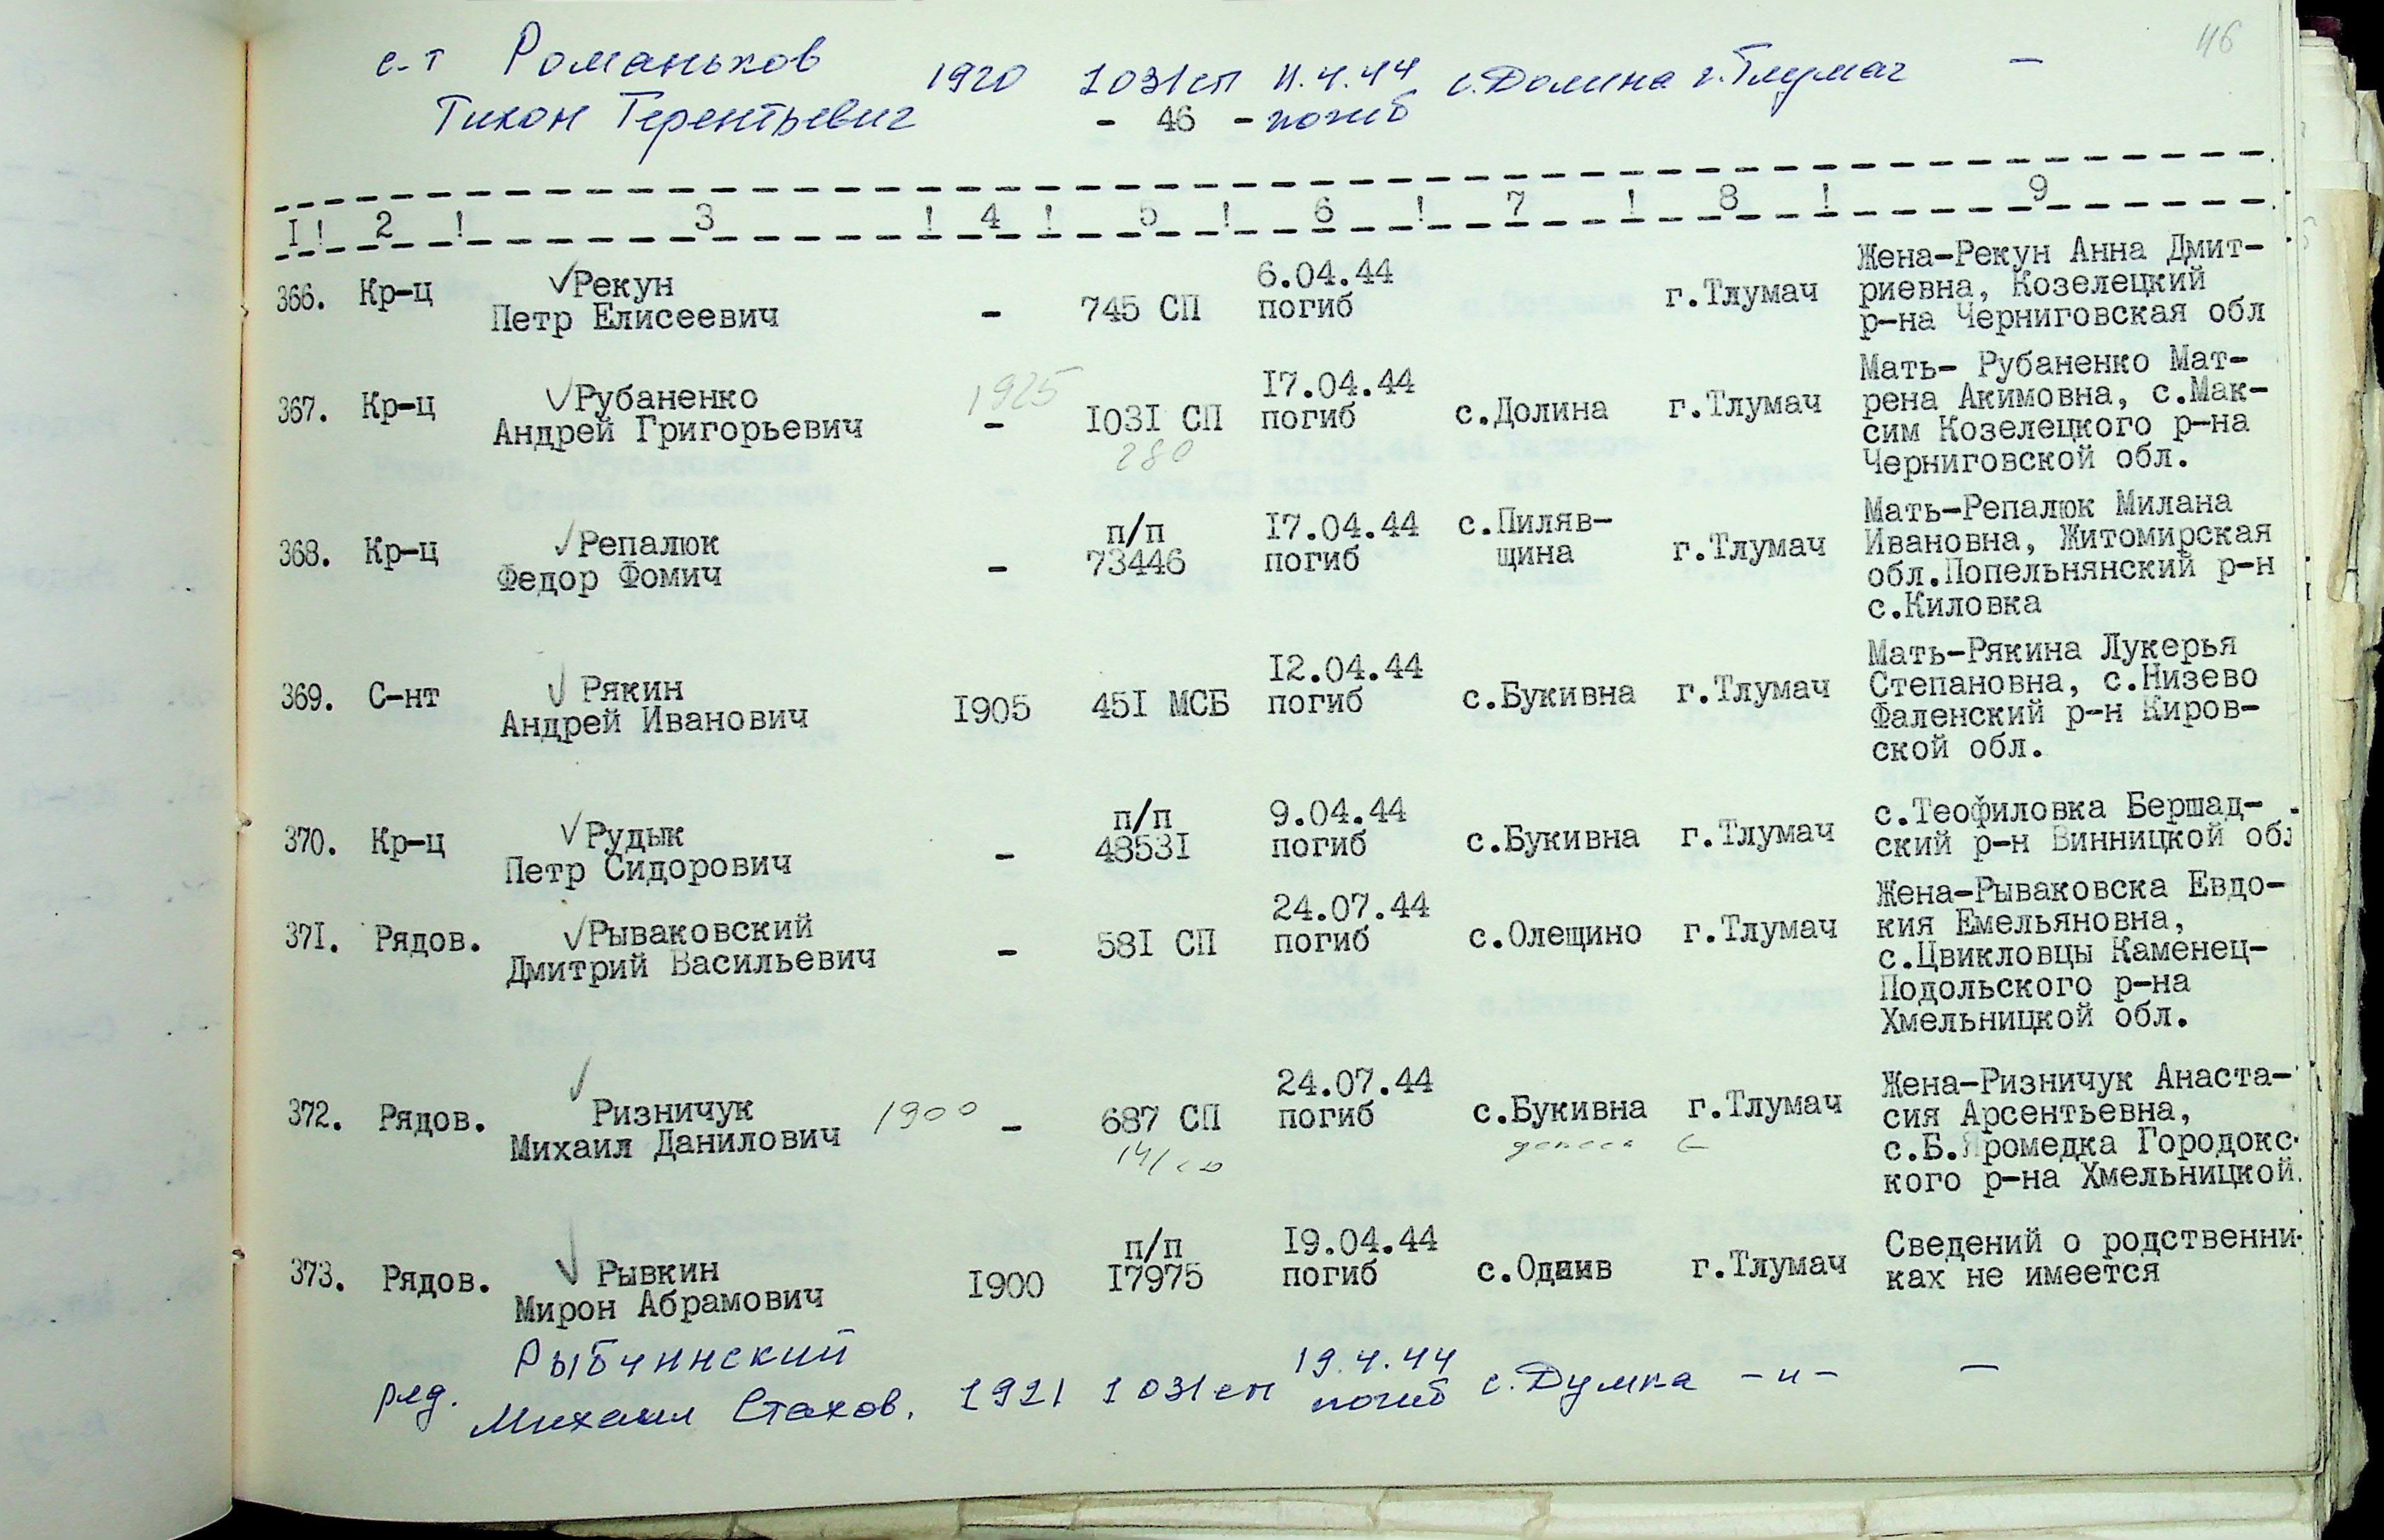 46
с-т Романьков 1920 1031сп 11.4.44 с.Долина г.Тлумач —
Тихон Терентьевич - 46 - погиб
1! 2 ! 3 ! 4 ! 5 ! 6 ! 7 ! 8 ! 9
366. Кр-ц ✓Рекун Петр Елисеевич - 745 СП 6.04.44 погиб г.Тлумач
Жена-Рекун Анна Дмит-
риевна, Козелецкий
р-на Черниговская обл
367. Кр-ц ✓Рубаненко Андрей Григорьевич 1925 - 1031 СП 280 17.04.44 погиб с.Долина г.Тлумач
Мать- Рубаненко Мат-
рена Акимовна, с.Мак-
сим Козелецкого р-на
Черниговской обл.
368. Кр-ц ✓Репалюк Федор Фомич - п/п 73446 17.04.44 погиб с.Пиляв-
щина г.Тлумач
Мать-Репалюк Милана
Ивановна, Житомирская
обл.Попельнянский р-н
с.Киловка
369. С-нт ✓ Рякин Андрей Иванович 1905 451 МСБ 12.04.44 погиб с.Букивна г.Тлумач
Мать-Рякина Лукерья
Степановна, с.Низево
Фаленский р-н Киров-
ской обл.
370. Кр-ц ✓Рудык Петр Сидорович - п/п 48531 9.04.44 погиб с.Букивна г.Тлумач
с.Теофиловка Бершад-
ский р-н Винницкой обл
371. Рядов. ✓Рываковский Дмитрий Васильевич - 581 СП 24.07.44 погиб с.Олещино г.Тлумач
Жена-Рываковска Евдо-
кия Емельяновна,
с.Цвикловцы Каменец-
Подольского р-на
Хмельницкой обл.
372. Рядов. ✓ Ризничук Михаил Данилович 1900 - 687 СП 24.07.44 погиб с.Букивна г.Тлумач
Жена-Ризничук Анаста-
сия Арсентьевна,
с.Б.Яромедка Городокс-
кого р-на Хмельницкой
373. Рядов. ✓ Рывкин Мирон Абрамович 1900 п/п 17975 19.04.44 погиб с.Однив г.Тлумач
Сведений о родственни-
ках не имеется
ряд. Рыбчинский Михаил Стахов. 1921 1031сп 19.4.44 погиб с.Думка -и- —